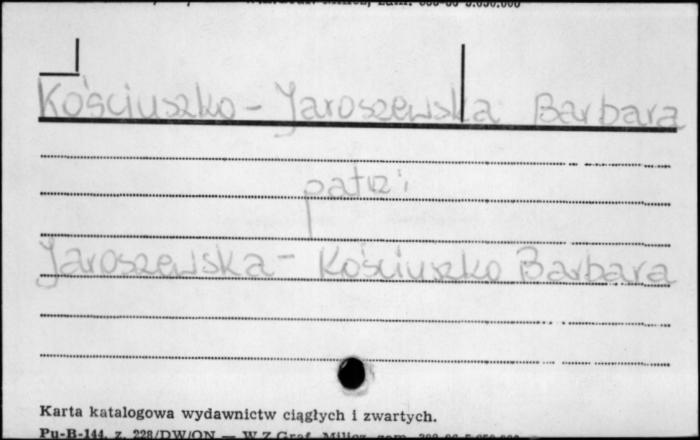 Kościuszko - Jaroszewska Barbara
patrz:
Jaroszewska - Kościuszko Barbara
Karta katalogowa wydawnictw ciągłych i zwartych.
Pu-B-144, z. 228/DW/ON — W.Z.Graf. Milicz, zam.